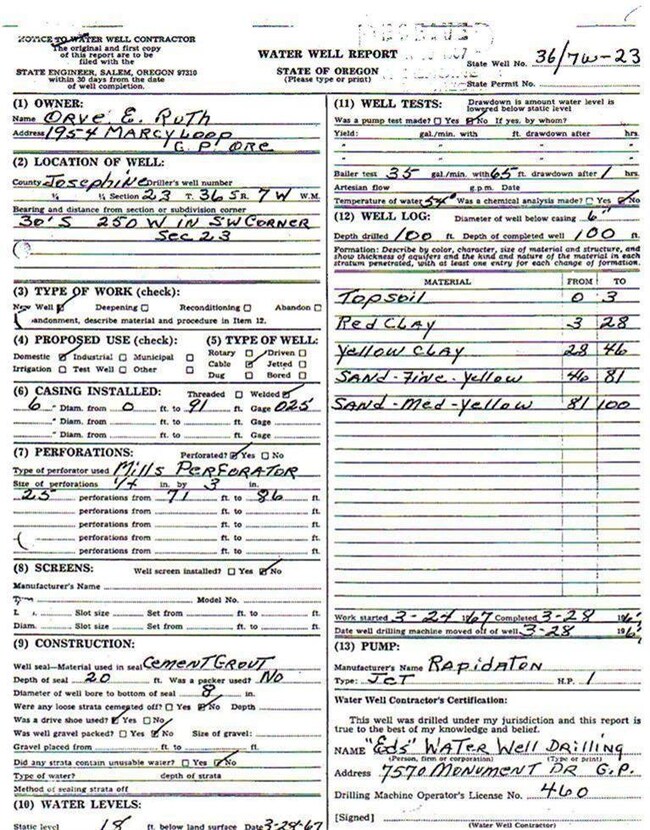 NOTICE TO WATER WELL CONTRACTOR
The original and first copy
of this report are to be
filed with the
STATE ENGINEER, SALEM, OREGON 97310
within 30 days from the date
of well completion.
WATER WELL REPORT
STATE OF OREGON
(Please type or print)
State Well No. 36/7W-23
State Permit No.
(1) OWNER:
Name Orve E. Ruth
Address 1954 MARCY LOOP
G.P. ORE
(2) LOCATION OF WELL:
County Josephine Driller's well number
¼ ¼ Section 23 T. 36 S R. 7 W W.M.
Bearing and distance from section or subdivision corner
30' S 250 W IN SW CORNER
Sec 23
(3) TYPE OF WORK (check):
New Well ☑ Deepening ☐ Reconditioning ☐ Abandon ☐
andonment, describe material and procedure in Item 12.
(4) PROPOSED USE (check):
Domestic ☑ Industrial ☐ Municipal ☐
Irrigation ☐ Test Well ☐ Other ☐
(5) TYPE OF WELL:
Rotary ☐ Driven ☐
Cable ☑ Jetted ☐
Dug ☐ Bored ☐
(6) CASING INSTALLED: Threaded ☐ Welded ☑
6 " Diam. from 0 ft. to 91 ft. Gage 025
" Diam. from ft. to ft. Gage
" Diam. from ft. to ft. Gage
(7) PERFORATIONS: Perforated? ☑ Yes ☐ No
Type of perforator used Mills PERFORATOR
Size of perforations 1/4 in. by 3 in.
25 perforations from 71 ft. to 86 ft.
perforations from ft. to ft.
perforations from ft. to ft.
perforations from ft. to ft.
perforations from ft. to ft.
(8) SCREENS: Well screen installed? ☐ Yes ☑ No
Manufacturer's Name
Model No.
Slot size Set from ft. to ft.
Diam. Slot size Set from ft. to ft.
(9) CONSTRUCTION:
Well seal—Material used in seal CEMENT GROUT
Depth of seal 20 ft. Was a packer used? No
Diameter of well bore to bottom of seal 8 in.
Were any loose strata cemented off? ☐ Yes ☑ No Depth
Was a drive shoe used? ☑ Yes ☐ No
Was well gravel packed? ☐ Yes ☑ No Size of gravel:
Gravel placed from ft. to ft.
Did any strata contain unusable water? ☐ Yes ☑ No
Type of water? depth of strata
Method of sealing strata off
(10) WATER LEVELS:
Static level 18 ft. below land surface Date 3-28-67
(11) WELL TESTS: Drawdown is amount water level is
lowered below static level
Was a pump test made? ☐ Yes ☑ No If yes, by whom?
Yield: gal./min. with ft. drawdown after hrs.
" " " "
" " " "
Bailer test 35 gal./min. with 65 ft. drawdown after 1 hrs.
Artesian flow g.p.m. Date
Temperature of water 54° Was a chemical analysis made? ☐ Yes ☑ No
(12) WELL LOG: Diameter of well below casing 6"
Depth drilled 100 ft. Depth of completed well 100 ft.
Formation: Describe by color, character, size of material and structure, and
show thickness of aquifers and the kind and nature of the material in each
stratum penetrated, with at least one entry for each change of formation.
MATERIAL FROM TO
Topsoil 0 3
Red CLAY 3 28
Yellow CLAY 28 46
SAND-Fine-Yellow 46 81
SAND-Med-Yellow 81 100
Work started 3-24 1967 Completed 3-28 196
Date well drilling machine moved off of well 3-28 196
(13) PUMP:
Manufacturer's Name RAPIDATON
Type: JET H.P. 1
Water Well Contractor's Certification:
This well was drilled under my jurisdiction and this report is
true to the best of my knowledge and belief.
NAME "Eds" WATER Well DRilling
(Person, firm or corporation) (Type or print)
Address 7570 MONUMENT DR G.P.
Drilling Machine Operator's License No. 460
[Signed]
(Water Well Contractor)